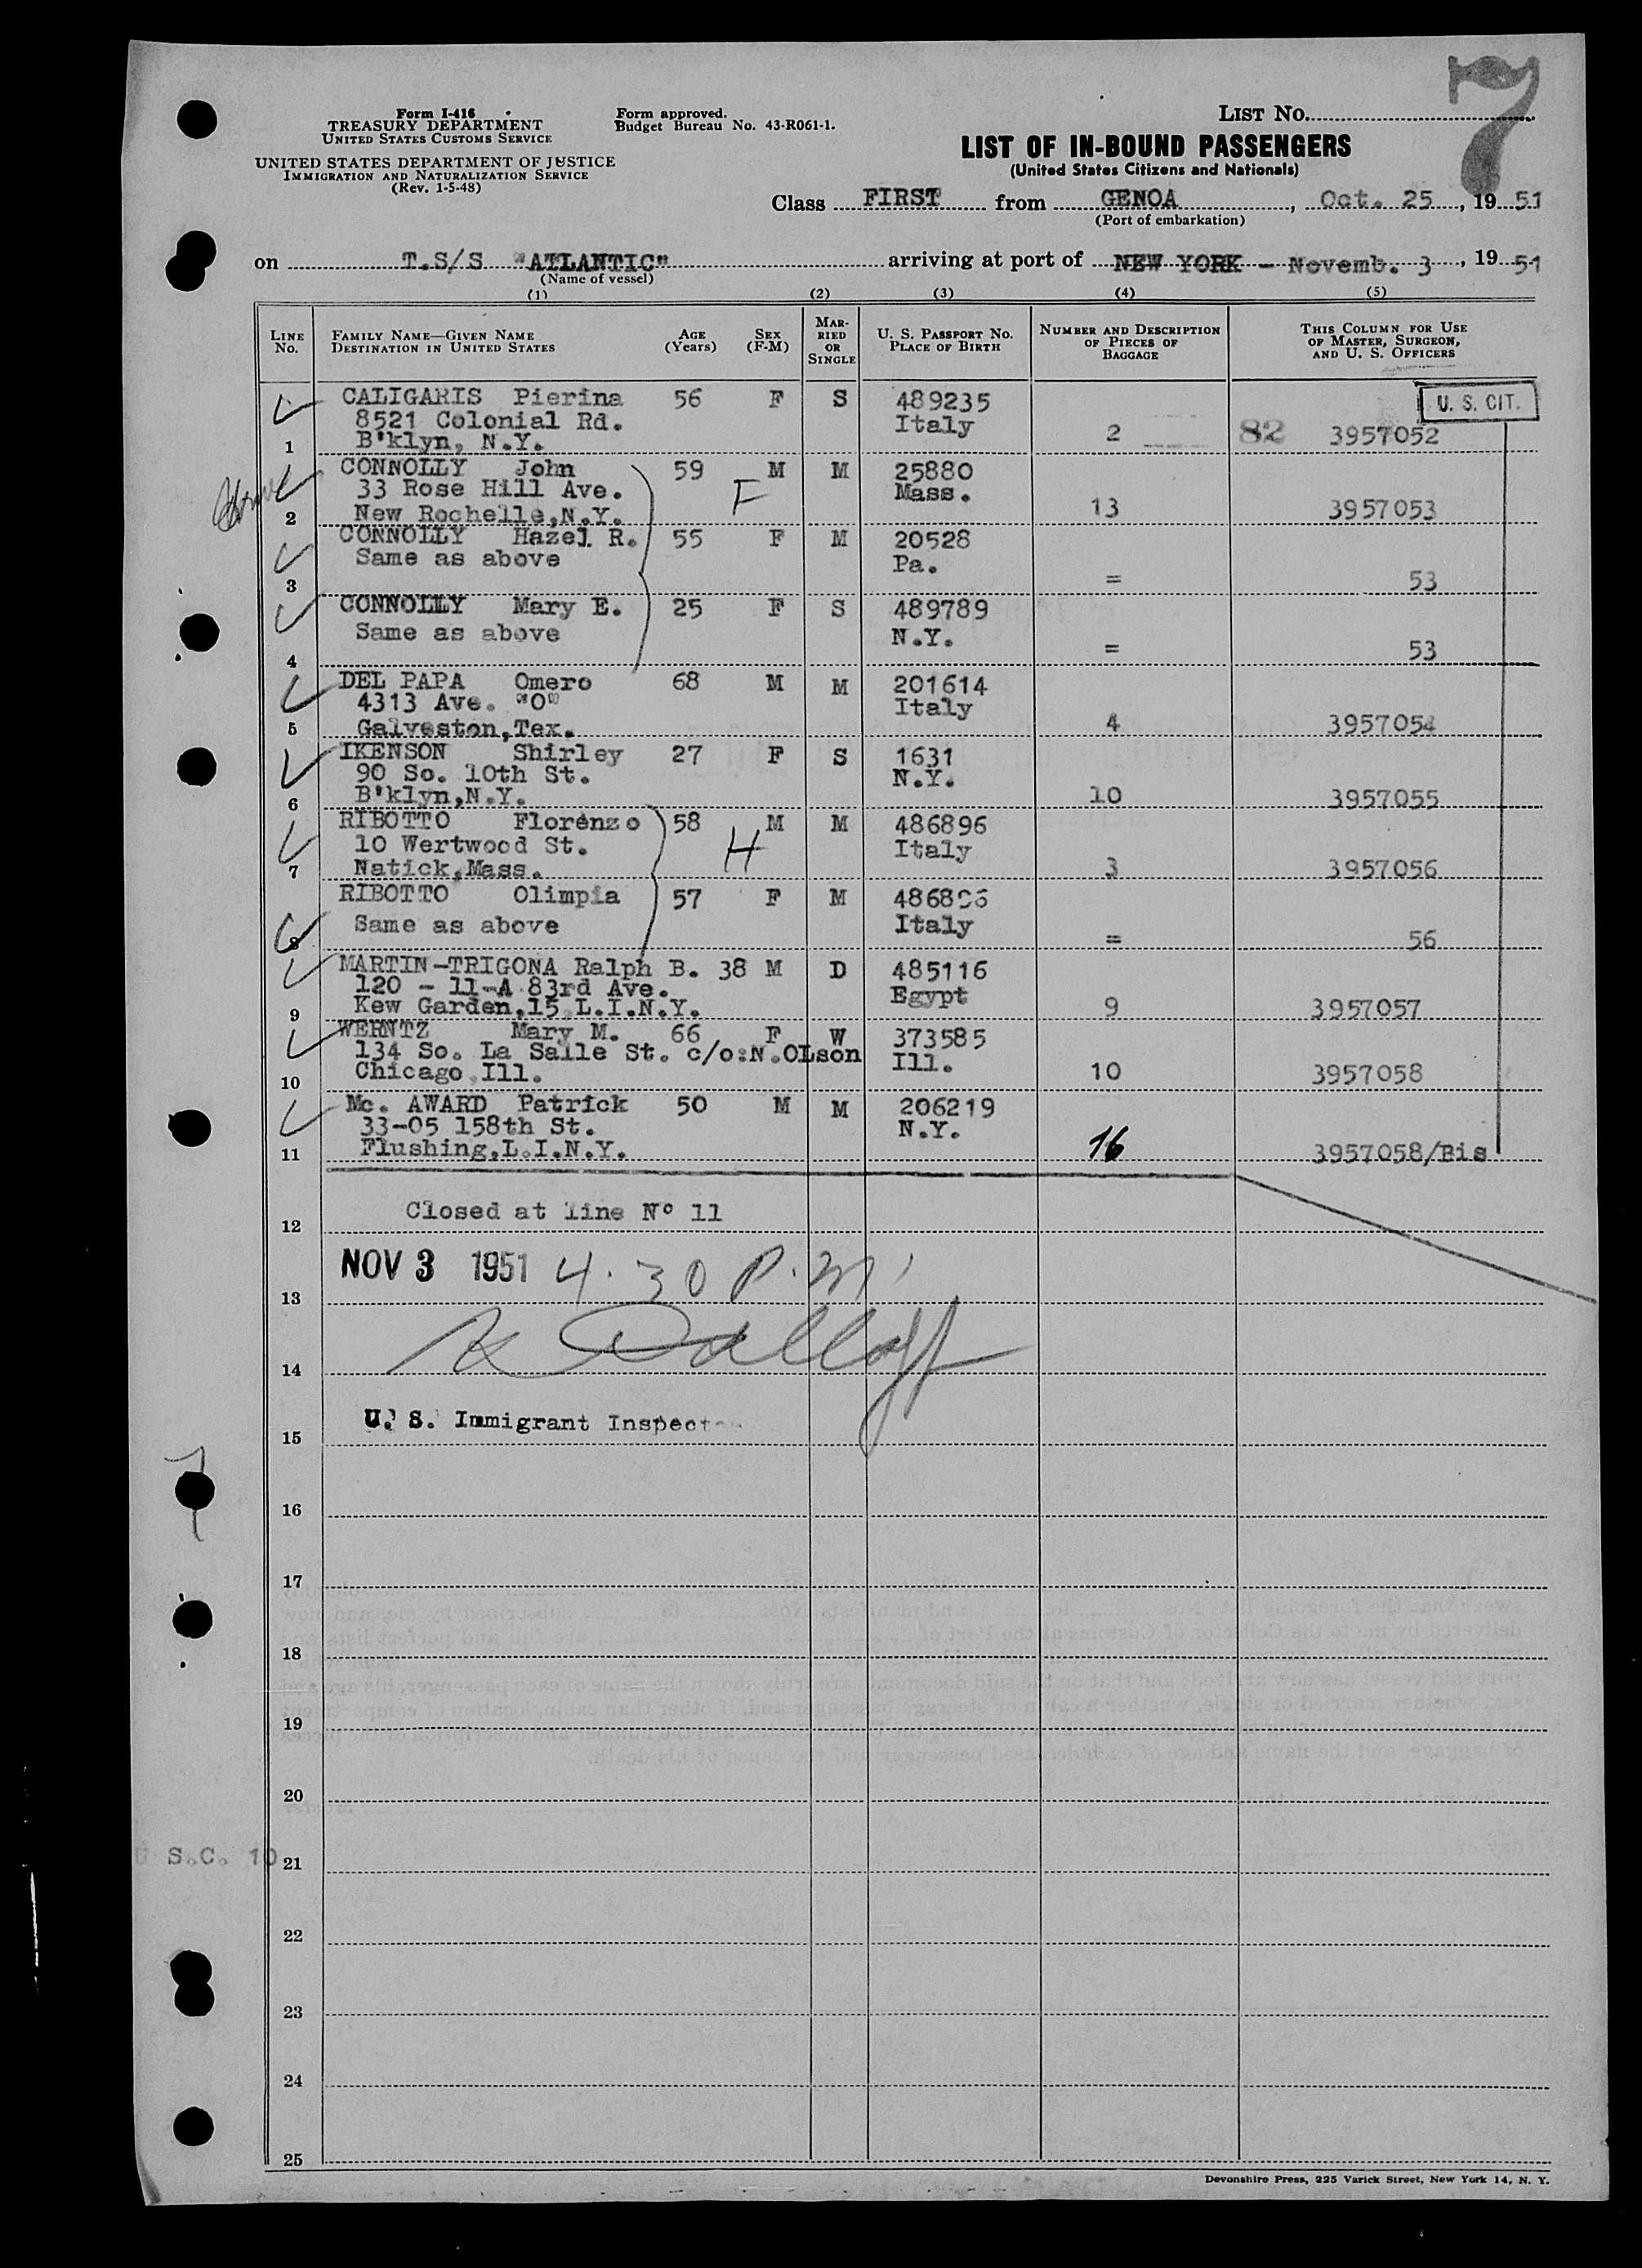 7
Form I-416
TREASURY DEPARTMENT
UNITED STATES CUSTOMS SERVICE
UNITED STATES DEPARTMENT OF JUSTICE
IMMIGRATION AND NATURALIZATION SERVICE
(Rev. 1-5-48)
Form approved.
Budget Bureau No. 43-R061-1.
LIST NO.
LIST OF IN-BOUND PASSENGERS
(United States Citizens and Nationals)
Class FIRST from GENOA, Oct. 25, 19 51
(Port of embarkation)
on T.S/S "ATLANTIC" arriving at port of NEW YORK - Novemb. 3, 19 51
(Name of vessel)
(1) (2) (3) (4) (5)
LINE NO. FAMILY NAME—GIVEN NAME DESTINATION IN UNITED STATES AGE (Years) SEX (F-M) MARRIED OR SINGLE U. S. PASSPORT NO. PLACE OF BIRTH NUMBER AND DESCRIPTION OF PIECES OF BAGGAGE THIS COLUMN FOR USE OF MASTER, SURGEON, AND U. S. OFFICERS
CALIGARIS Pierina 56 F S 489235 U. S. CIT.
8521 Colonial Rd. Italy
1 B'klyn, N.Y. 2 82 3957052
CONNOLLY John 59 M M 25880
33 Rose Hill Ave. F Mass.
2 New Rochelle,N.Y. 13 3957053
CONNOLLY Hazel R. 55 F M 20528
Same as above Pa.
3 = 53
CONNOLLY Mary E. 25 F S 489789
Same as above N.Y.
4 = 53
DEL PAPA Omero 68 M M 201614
4313 Ave. "O" Italy
5 Galveston,Tex. 4 3957054
IKENSON Shirley 27 F S 1631
90 So. 10th St. N.Y.
6 B'klyn,N.Y. 10 3957055
RIBOTTO Florenzo 58 M M 486896
10 Wertwood St. H Italy
7 Natick,Mass. 3 3957056
RIBOTTO Olimpia 57 F M
Same as above Italy
8 = 56
MARTIN-TRIGONA Ralph B. 38 M D 485116
120 - 11-A 83rd Ave. Egypt
9 Kew Garden,15 L.I.N.Y. 9 3957057
WERNTZ Mary M. 66 F W 373585
134 So. La Salle St. c/o:N.OLson Ill.
10 Chicago Ill. 10 3957058
Mc. AWARD Patrick 50 M M 206219
33-05 158th St. N.Y.
11 Flushing,L.I.N.Y. 16 3957058/Bis
12 Closed at line Nº 11
13 NOV 3 1951 4.30 P.M.
14
15 U. S. Immigrant Inspector
16
17
18
19
20
S.C. 10 21
22
23
24
25
Devonshire Press, 225 Varick Street, New York 14, N. Y.